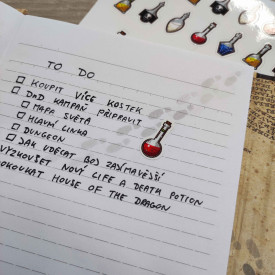 TO DO
KOUPIT VÍCE KOSTEK
DnD KAMPAŇ PŘIPRAVIT
MAPA SVĚTA
HLAVNÍ LINKA
DUNGEON
JAK UDĚLAT BOJ ZAJÍMAVĚJŠÍ
VYZKOUŠET NOVÝ LIFE A DEATH POTION
DOKOUKAT HOUSE OF THE DRAGON